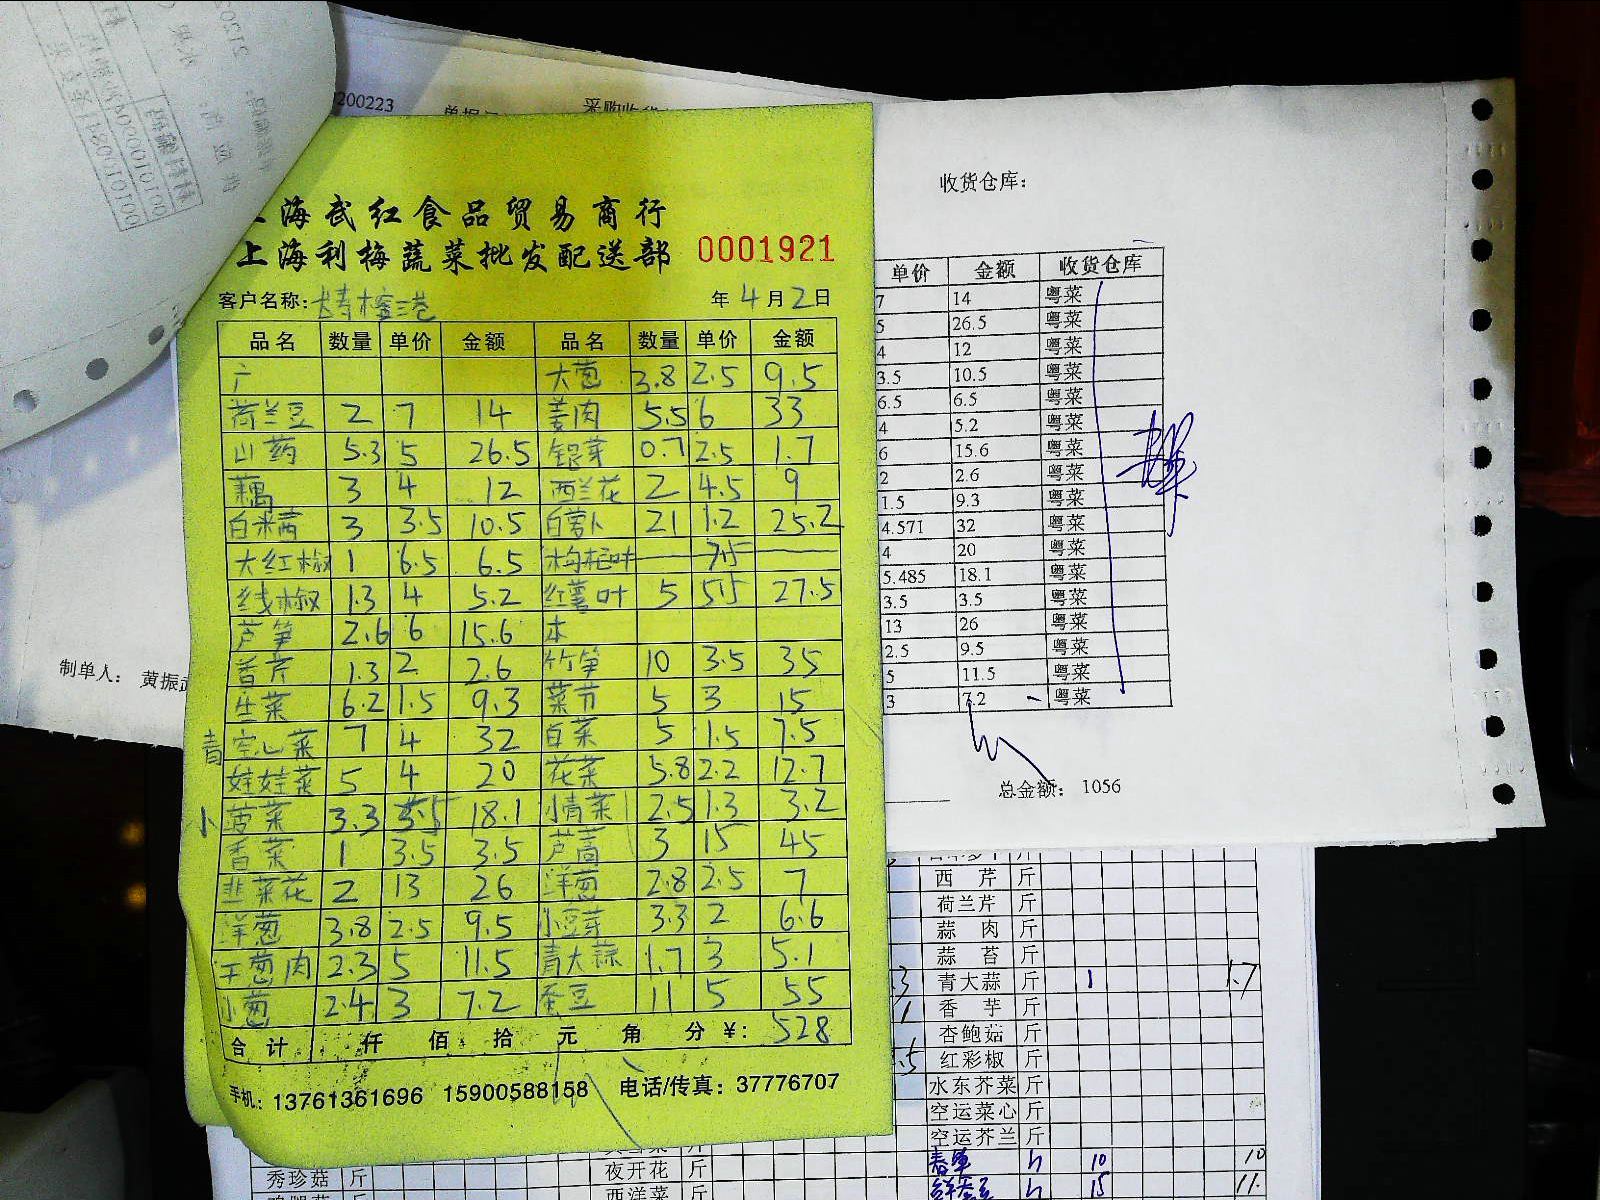 200223
采购收货
收货仓库：
上海武红食品贸易商行
上海利梅蔬菜批发配送部 0001921
客户名称： 年 4 月 2 日
品名 数量 单价 金额 品名 数量 单价 金额
广 大葱 3.8 2.5 9.5
荷兰豆 2 7 14 姜肉 5.5 6 33
山药 5.3 5 26.5 银芽 0.7 2.5 1.7
藕 3 4 12 西兰花 2 4.5 9
3 3.5 10.5 白萝卜 21 1.2 25.2
大红椒 1 6.5 6.5 枸杞叶
线椒 1.3 4 5.2 红薯叶 5 5.5 27.5
芦笋 2.6 6 15.6 本
香芹 1.3 2 2.6 竹笋 10 3.5 35
生菜 6.2 1.5 9.3 菜节 5 3 15
青 空心菜 7 4 32 白菜 5 1.5 7.5
娃娃菜 5 4 20 花菜 5.8 2.2 12.7
小 菠菜 3.3 18.1 小青菜 2.5 1.3 3.2
香菜 1 3.5 3.5 芦高 3 15 45
韭菜花 2 13 26 洋葱 2.8 2.5 7
洋葱 3.8 2.5 9.5 小豆芽 3.3 2 6.6
干葱肉 2.3 5 11.5 青大蒜 1.7 3 5.1
小葱 2.4 3 7.2 蚕豆 11 5 55
合计 仟 佰 拾 元 角 分 ¥: 528
手机：13761361696 15900588158 电话/传真：37776707
单价 金额 收货仓库
7 14 粤菜
5 26.5 粤菜
4 12 粤菜
3.5 10.5 粤菜
6.5 6.5 粤菜
4 5.2 粤菜
6 15.6 粤菜
2 2.6 粤菜
1.5 9.3 粤菜
4.571 32 粤菜
4 20 粤菜
5.485 18.1 粤菜
3.5 3.5 粤菜
13 26 粤菜
2.5 9.5 粤菜
5 11.5 粤菜
3 7.2 粤菜
总金额： 1056
制单人： 黄振武
西芹 斤
荷兰芹 斤
蒜肉 斤
蒜苔 斤
青大蒜 斤 1 1.7
香芋 斤
杏鲍菇 斤
红彩椒 斤
水东芥菜 斤
空运菜心 斤
空运芥兰 斤
10 10
15 11.
秀珍菇 斤
夜开花 斤
西洋菜 斤